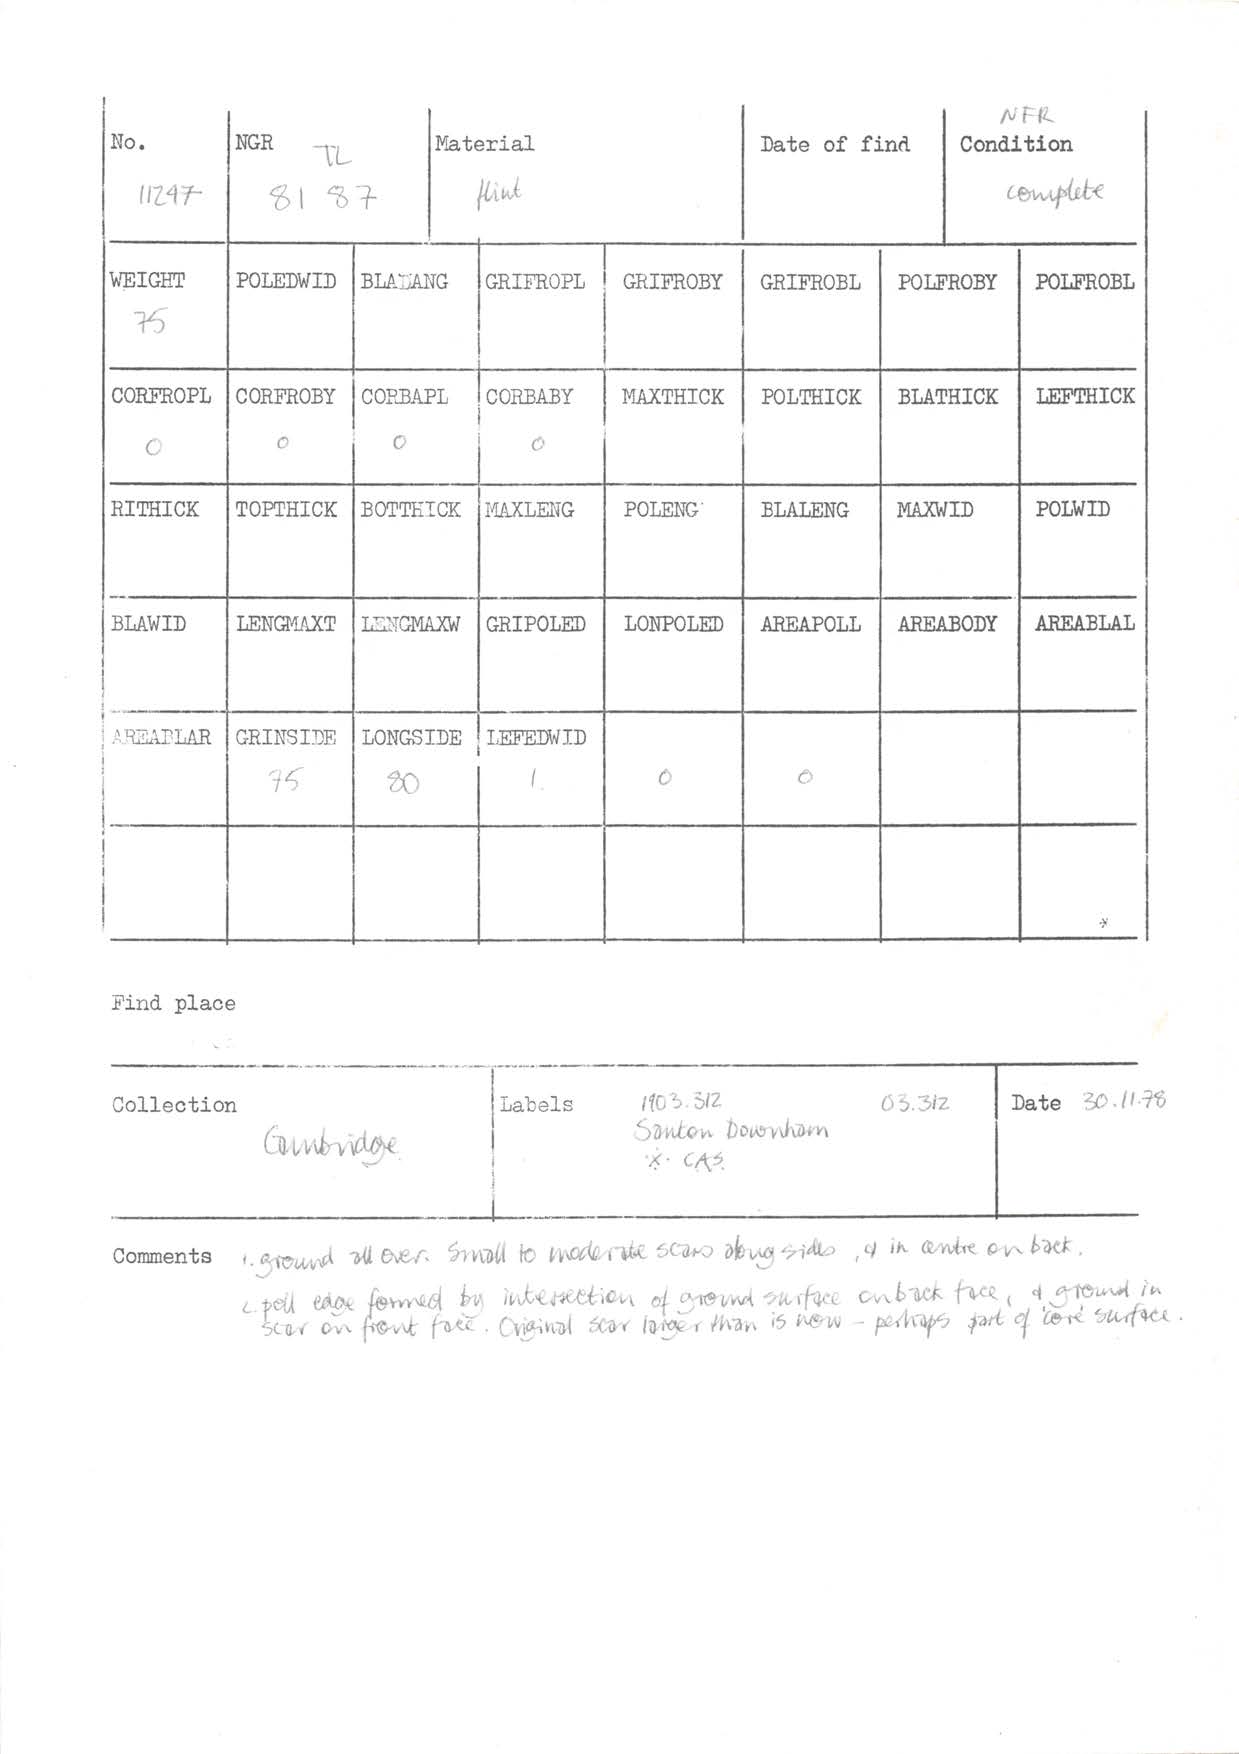 NFR
No. NGR Material Date of find Condition
TL
11247 81 87 flint complete
WEIGHT POLEDWID BLADANG GRIFROPL GRIFROBY GRIFROBL POLFROBY POLFROBL
75
CORFROPL CORFROBY CORBAPL CORBABY MAXTHICK POLTHICK BLATHICK LEFTHICK
0 0 0 0
RITHICK TOPTHICK BOTTHICK MAXLENG POLENG BLALENG MAXWID POLWID
BLAWID LENGMAXT LENGMAXW GRIPOLED LONPOLED AREAPOLL AREABODY AREABLAL
AREABLAR GRINSIDE LONGSIDE LEFEDWID
75 80 1. 0 0
*
Find place
Collection Labels 1903.312 03.312 Date 30.11.78
Cambridge Santon Downham
* CAS.
Comments 1. ground all over. Small to moderate scars along sides, & in centre on back.
2. poll edge formed by intersection of ground surface on back face, & ground in
scar on front face. Original scar larger than is now – perhaps part of 'core' surface.